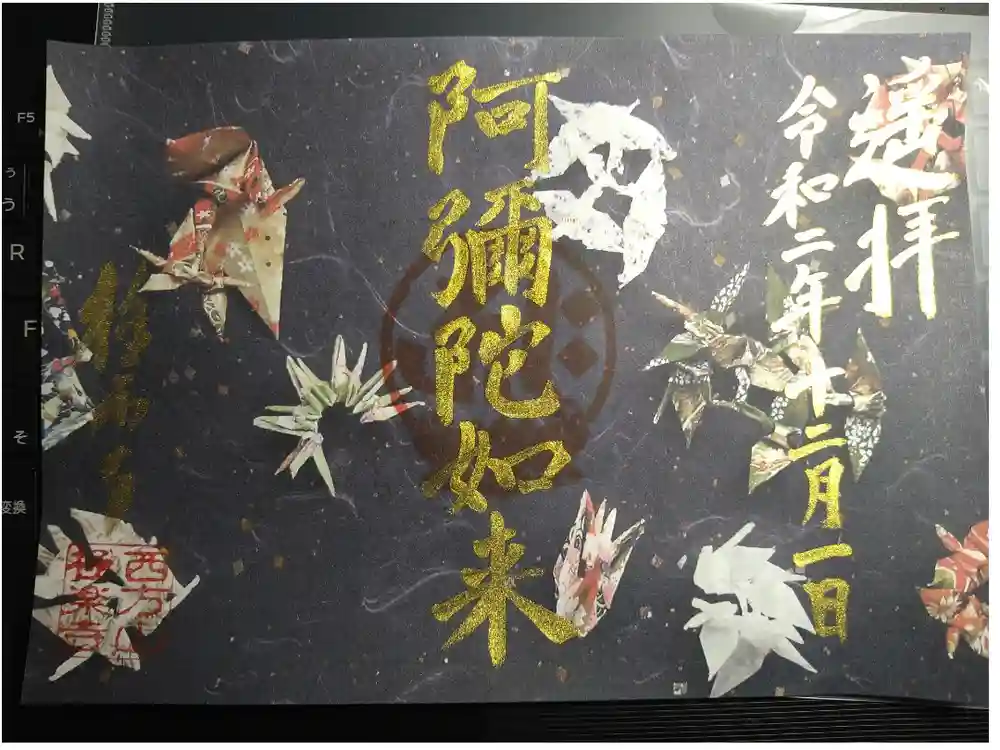 遥拝
令和二年十二月一日
阿彌陀如来
西方山
極楽寺
F5
ぅ
う
R
F
そ
変換